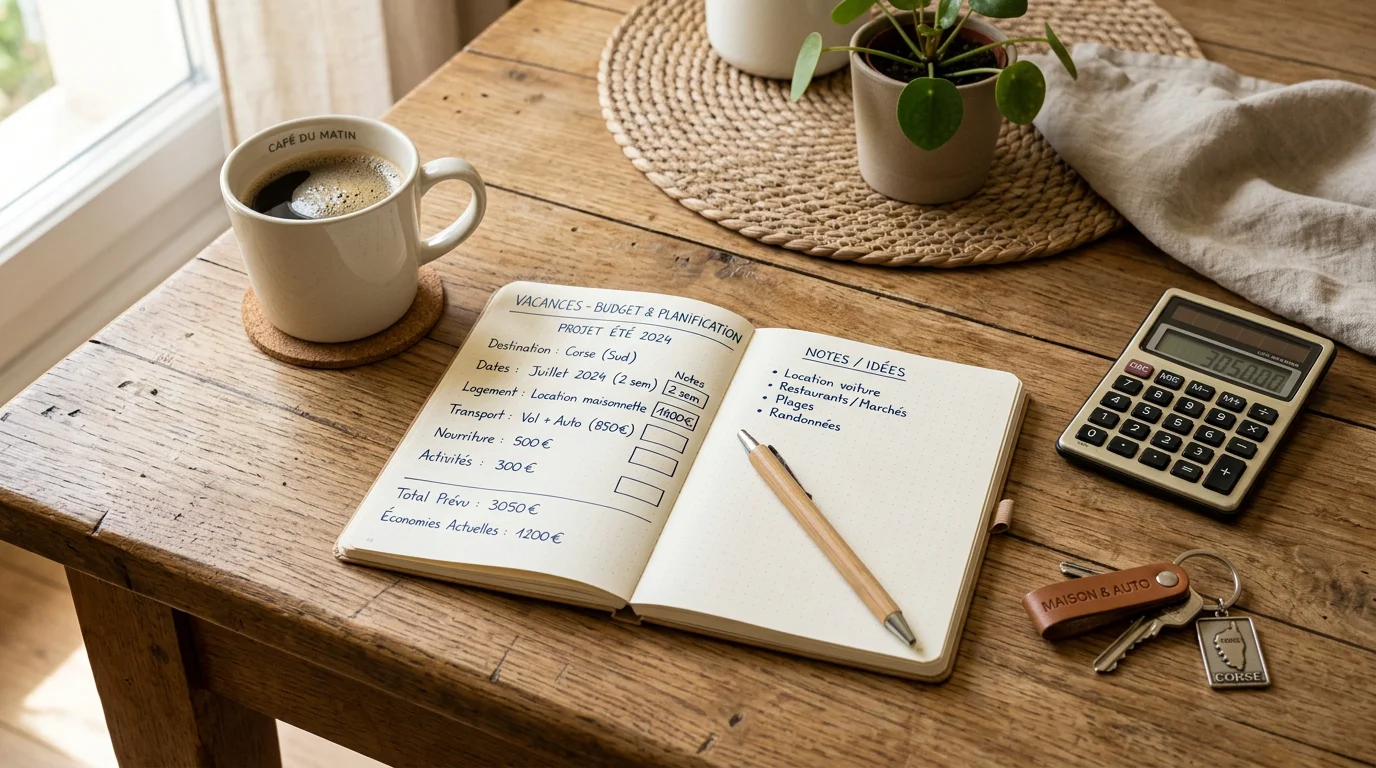 CAFÉ DU MATIN
VACANCES - BUDGET & PLANIFICATION
PROJET ÉTÉ 2024
Destination : Corse (Sud)
Dates : Juillet 2024 (2 sem)
Notes
2 sem
Logement : Location maisonnette
1400€
Transport : Vol + Auto (850€)
Nourriture : 500€
Activités : 300€
Total Prévu : 3050€
Économies Actuelles : 1200€
NOTES / IDÉES
• Location voiture
• Restaurants / Marchés
• Plages
• Randonnées
M-
M+
7
8
9
÷
4
5
6
1
2
3
0
=
+
MAISON & AUTO
CORSE